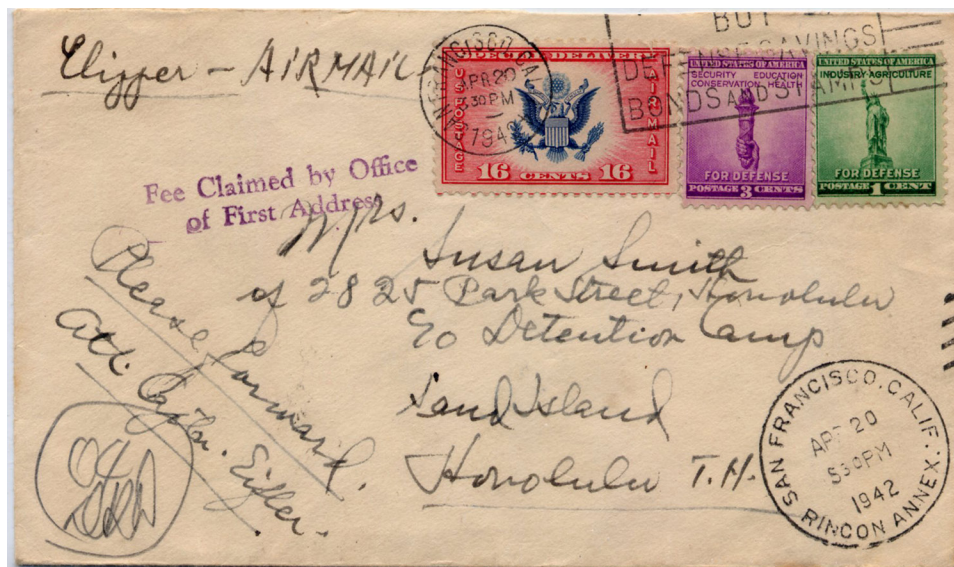 Clipper - AIRMAIL
SAN FRANCISCO, CAL.
APR 20
530 PM
1942
BUY
DEFENSE SAVINGS
BONDS AND STAMPS
SPECIAL DELIVERY
U.S. POSTAGE
AIR MAIL
16 CENTS 16
UNITED STATES OF AMERICA
SECURITY EDUCATION
CONSERVATION HEALTH
FOR DEFENSE
POSTAGE 3 CENTS
UNITED STATES OF AMERICA
INDUSTRY AGRICULTURE
FOR DEFENSE
POSTAGE 1 CENT
Fee Claimed by Office
of First Address
Mrs.
Susan Smith
of 2825 Park Street, Honolulu
c/o Detention Camp
Sand Island
Honolulu T.H.
Please Forward.
Att. Captn. Eifler.
SAN FRANCISCO, CALIF.
APR 20
530 PM
1942
RINCON ANNEX.